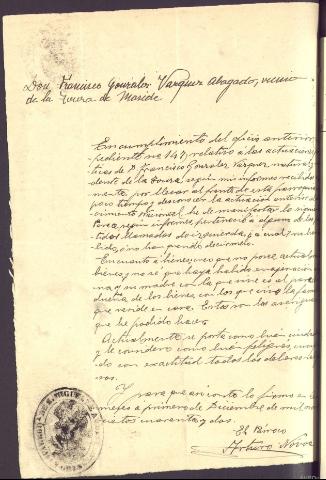 Don Francisco Gonzalez Vazquez Abogado, vecino
de la Touza de Maside
En cumplimiento del oficio anterior
pediente nº 147, relativo a las actuacion
ticas de D. Francisco Gonzalez Vazquez, natural y
dente de la Touza, según mis informes recibidos
mente, por llevar al frente de esta parroquia
poco tiempo y desconocer la actuación anterior al
cimiento Nacional, he de manifestar lo
según informes perteneció a alguno de los
tidos llamados de izquierda, a cual, no ha
no han querido decírmelo.
En cuanto a bienes, creo que no posee actualm
bienes, y no sé que haya habido separación
su madre con la que vive es al
dueña de los bienes con los que vive la
que reside en casa. Estas son las averigua
que he podido hacer.
Actualmente se porta como buen ciudad
y le considero como buen feligrés,
do con exactitud todos los deberes
sos.
Y para que así conste lo firmo en
meses a primero de Diciembre de mil no
cientos cuarenta y dos.
El Párroco
Arturo Novoa